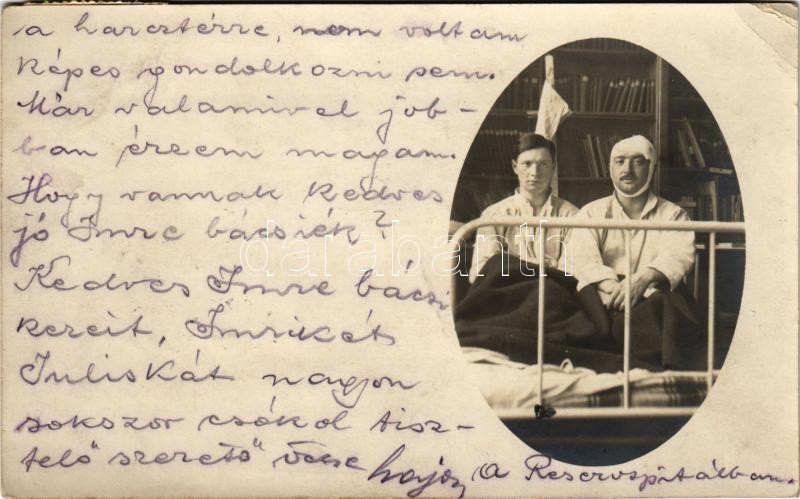 a harcztérre, nem voltam
képes gondolkozni sem.
Már valamivel job-
ban érzem magam.
Hogy vannak kedves
jó Imre bácsiék?
Kedves Imre bácsi
kereit, Imrikét
Juliskát nagyon
sokszor csókol tisz-
telő szerető öcse
(A Reservspitálban.
darabanth